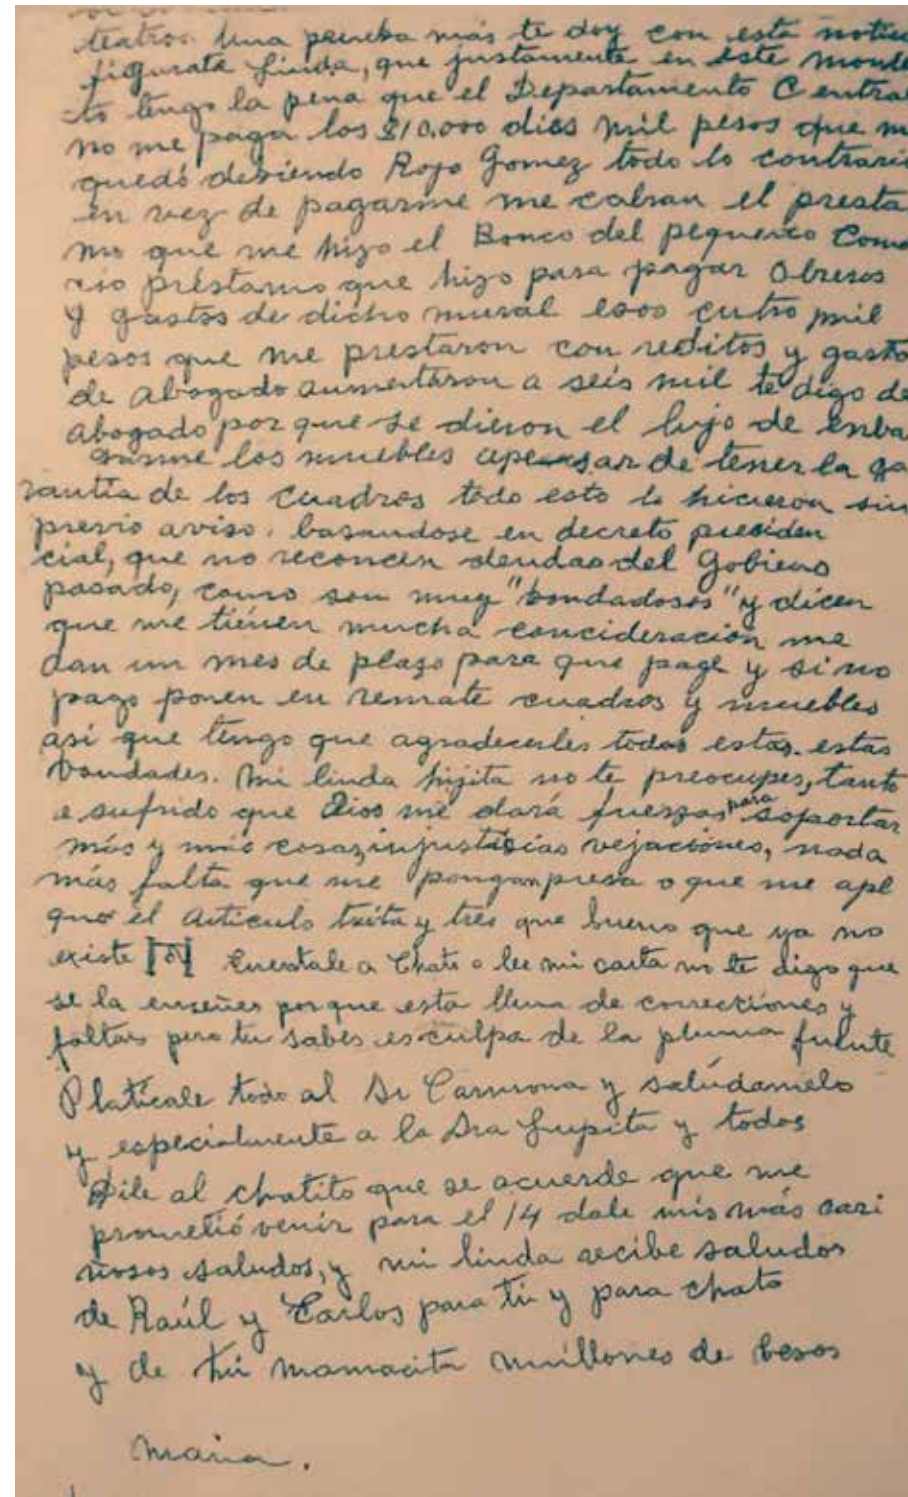 teatros. Una prueba más te doy con esta notici
figurate linda, que justamente en este mome
to tengo la pena que el Departamento Centra
no me paga los $10.000 dies mil pesos que m
quedó debiendo Rojo Gomez todo lo contrario
en vez de pagarme me cobran el presta
mo que me hizo el Banco del pequeño Come
rcio préstamo que hizo para pagar Obreros
y gastos de dicho mural esos cutro mil
pesos que me prestaron con reditos y gasto
de abogado aumentaron a seis mil te digo de
abogado por que se dieron el lujo de emba
garme los muebles apensar de tener la ga
rantía de los cuadros todo esto lo hicieron sin
previo aviso. basandose en decreto presiden
cial, que no reconcen deudas del Gobieno
pasado, como son muy "bondadosos" y dicen
que me tiénen mucha concideración me
dan un mes de plazo para que page y si no
pago ponen en remate cuadros y muebles
asi que tengo que agradecerles todas estas estas
vondades. Mi linda hijita no te preocupes, tanto
e sufrido que Dios me dará fuerzas para soportar
más y más cosaz injusticias vejaciónes, nada
más falta que me pongan presa o que me apl
que el Articulo treita y tres que bueno que ya no
existe Cuentale a Chato o lee mi carta no te digo que
se la enseñes porque esta llena de correcciónes y
faltas pero tu sabes es culpa de la pluma fuente
Platícale todo al Dr Carmona y salúdamelo
y especialmente a la Dra Lupita y todos
Dile al chatito que se acuerde que me
prometió venir para el 14 dale mis más cari
ñosos saludos, y mi linda recibe saludos
de Raúl y Carlos para tí y para chato
y de tú mamacita muillones de besos
Maria.